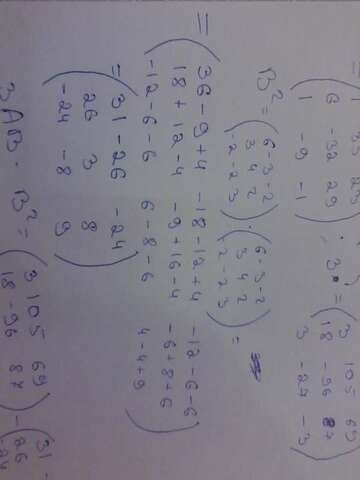 = ( 1 35 23
6 -32 29
1 -9 -1 ) ; 3 = ( 3 105 69
18 -96 87
3 -27 -3 )
B² = ( 6 -3 -2
3 4 2
2 -2 3 ) · ( 6 -3 -2
3 4 2
2 -2 3 ) =
= ( 36-9+4 -18-12+4 -12-6-6
18+12-4 -9+16-4 -6+8+6
-12-6-6 6-8-6 4-4+9 )
= ( 31 -26 -24
26 3 8
-24 -8 9 )
3AB - B² = ( 3 105 69
18 -96 87 ) - ( 31
26
-24